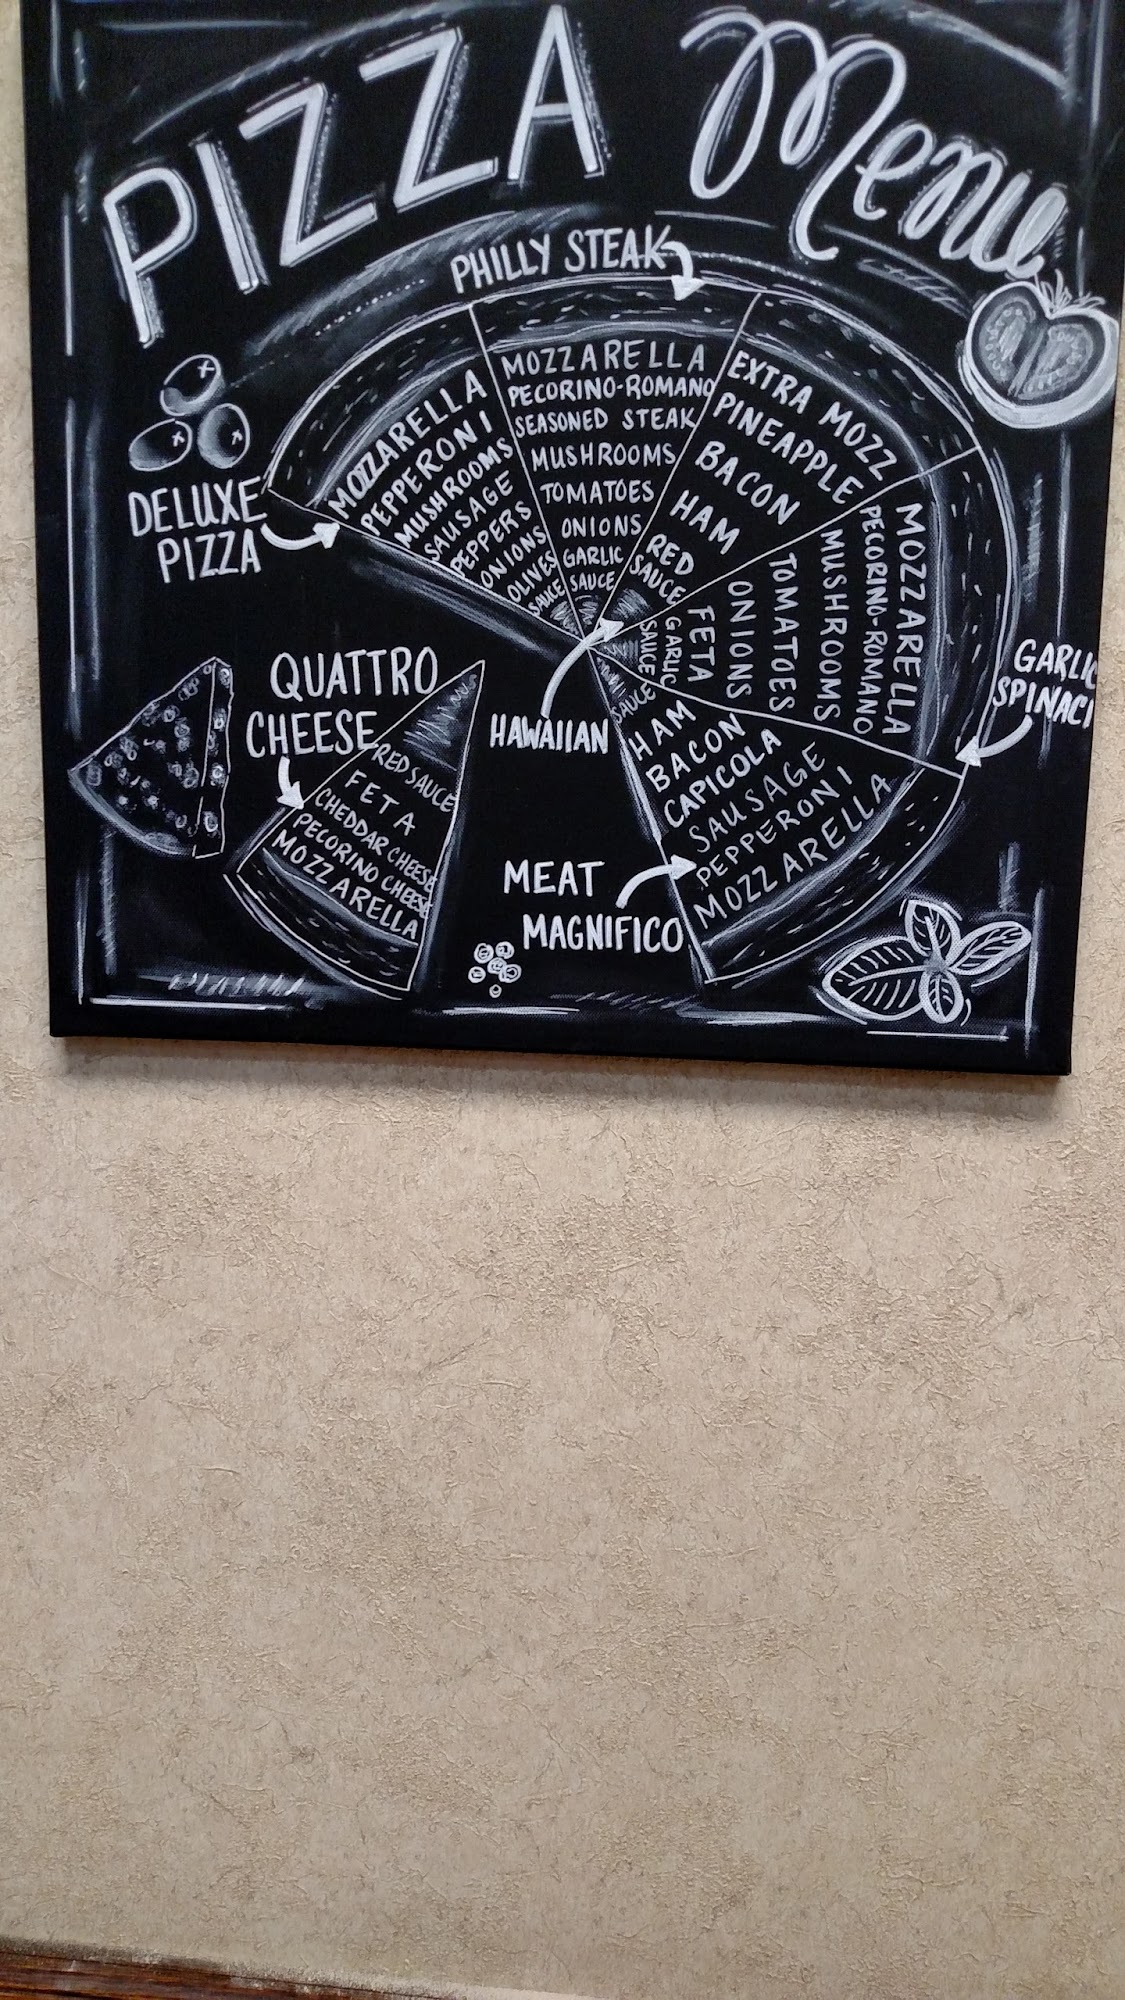 PIZZA Menu
PHILLY STEAK
MOZZARELLA
PECORINO-ROMANO
SEASONED STEAK
MUSHROOMS
TOMATOES
ONIONS
GARLIC
SAUCE
DELUXE
PIZZA
MOZZARELLA
PEPPERONI
MUSHROOMS
SAUSAGE
PEPPERS
ONIONS
OLIVES
SAUCE
EXTRA MOZZ
PINEAPPLE
BACON
HAM
RED
SAUCE
HAWAIIAN
MOZZARELLA
PECORINO-ROMANO
MUSHROOMS
TOMATOES
ONIONS
FETA
GARLIC
SAUCE
GARLIC
SPINACI
QUATTRO
CHEESE
RED SAUCE
FETA
CHEDDAR CHEESE
PECORINO CHEESE
MOZZARELLA
MEAT
MAGNIFICO
SAUCE
HAM
BACON
CAPICOLA
SAUSAGE
PEPPERONI
MOZZARELLA